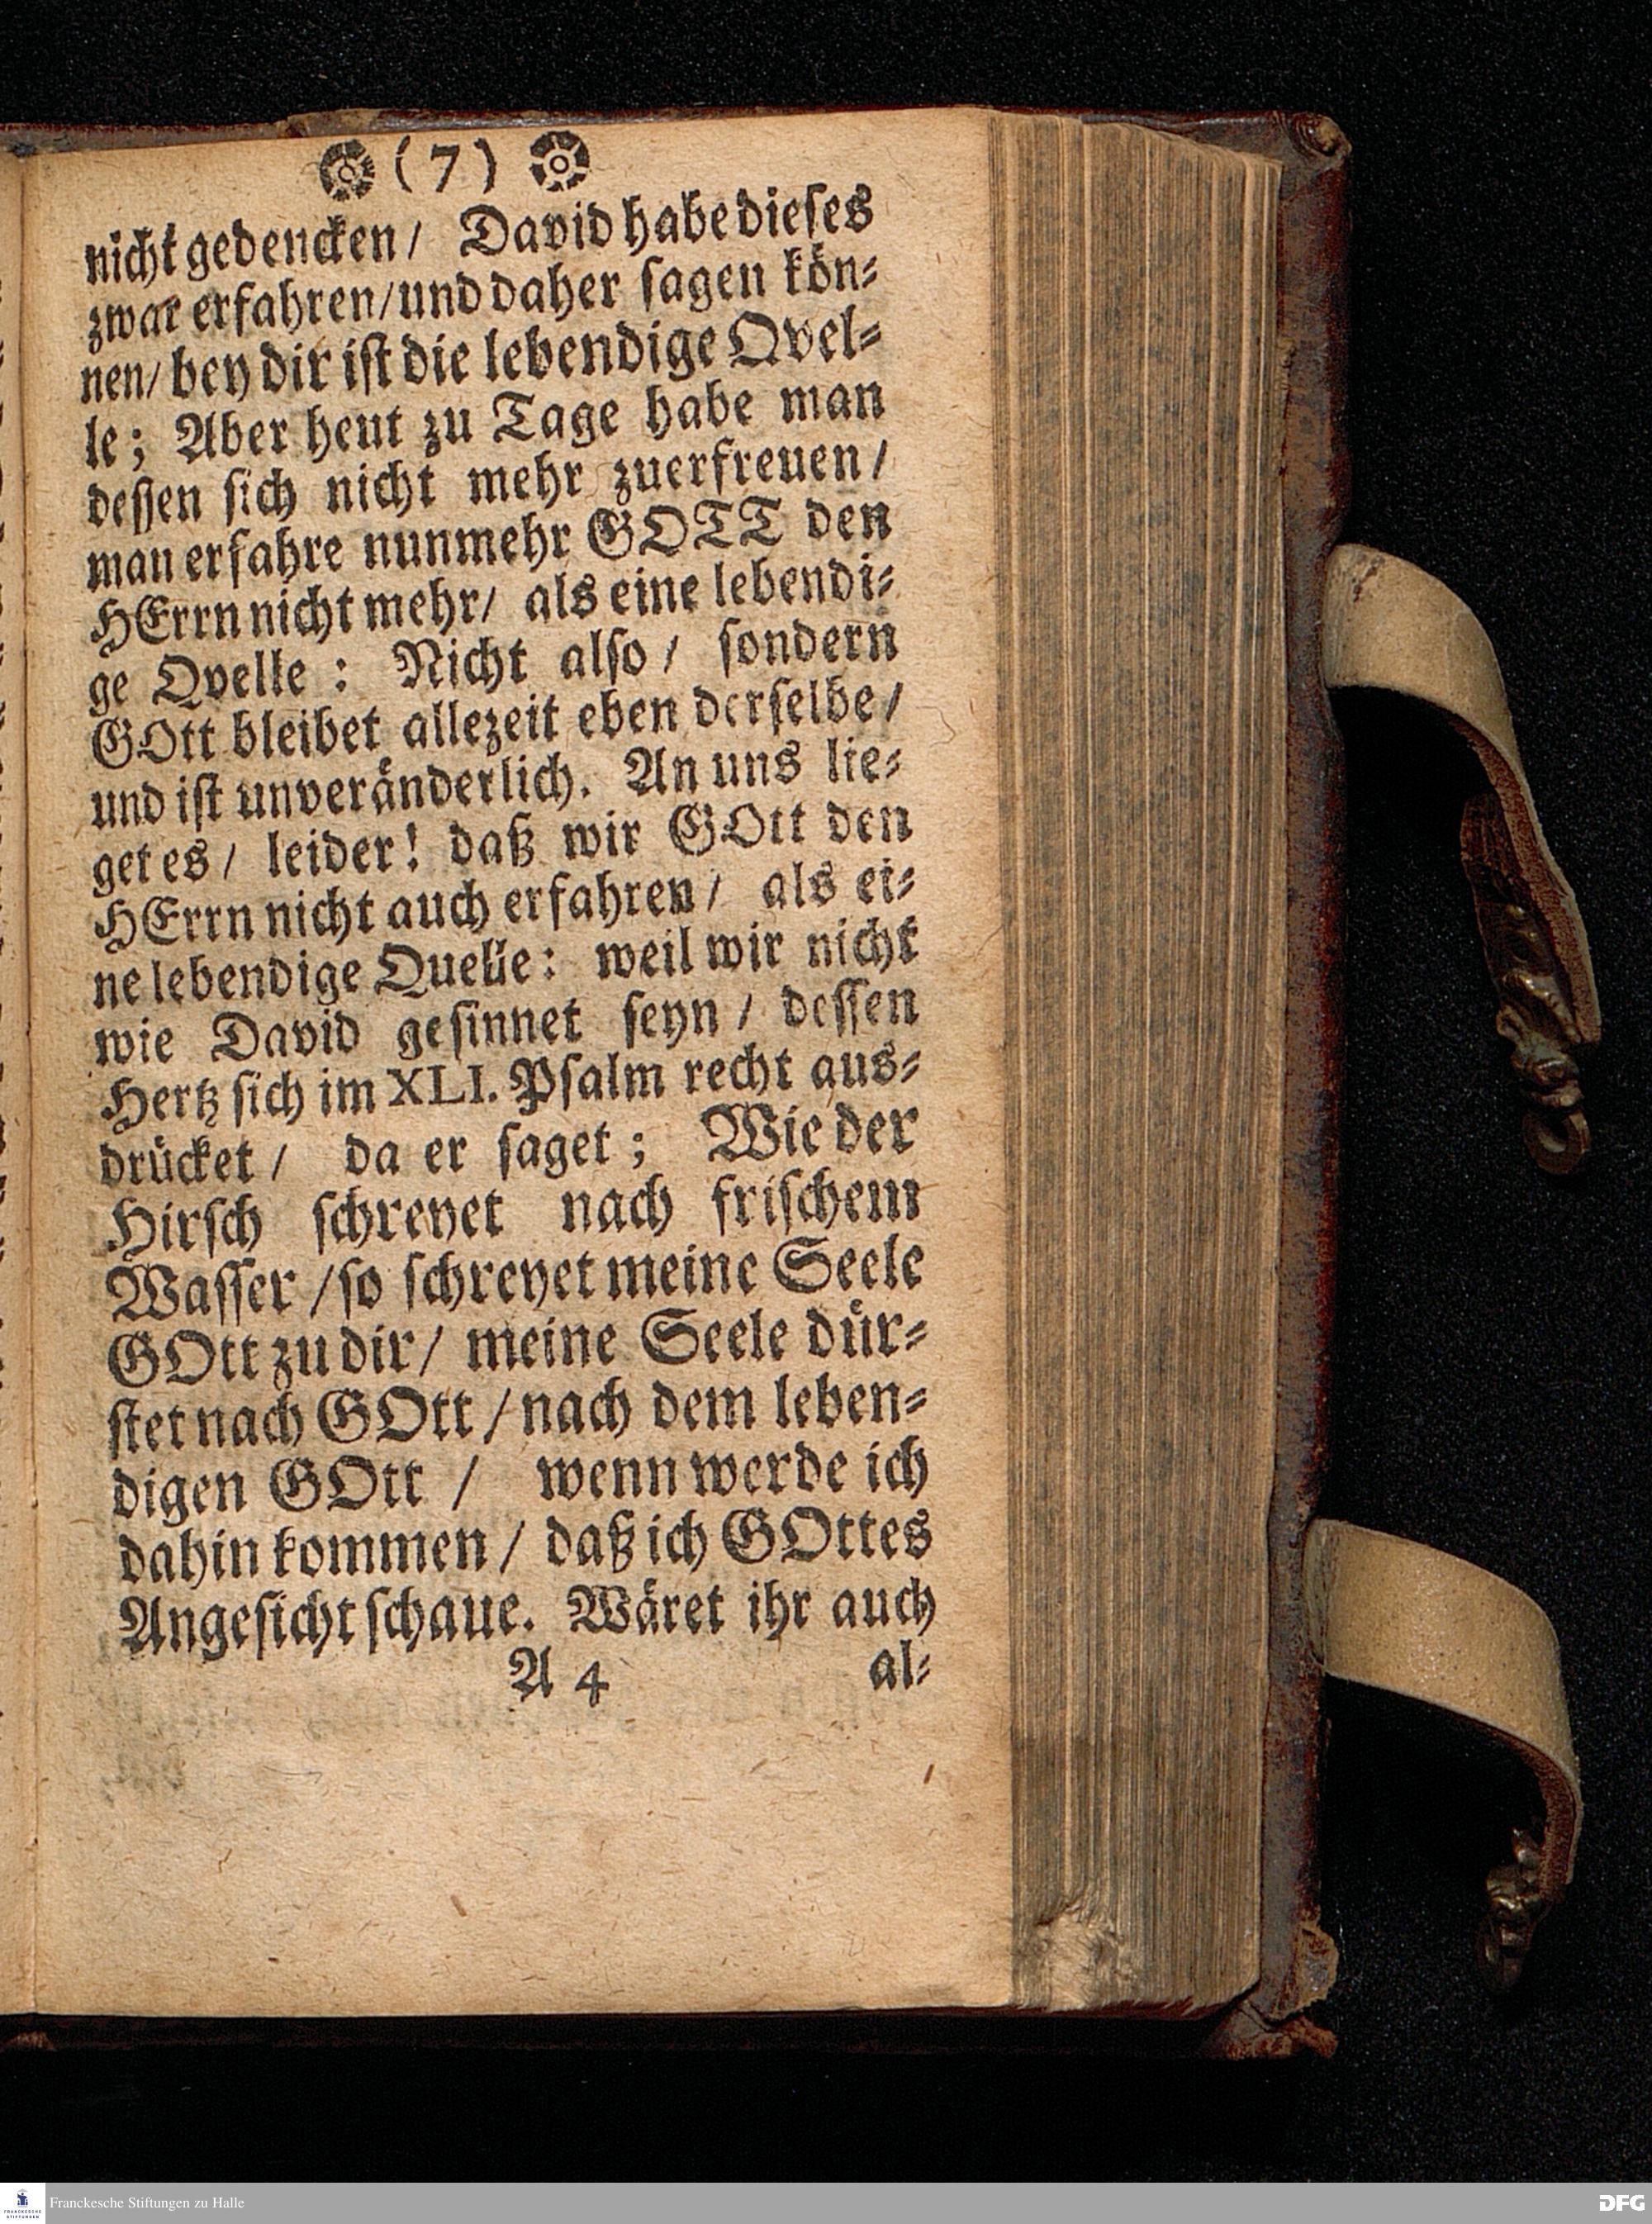 (7)
nicht gedencken/ David habe dieses
zwar erfahren/und daher sagen kön⸗
nen/ bey dir ist die lebendige Qvel⸗
le; Aber heut zu Tage habe man
dessen sich nicht mehr zuerfreuen/
man erfahre nunmehr GOTT den
HErrn nicht mehr/ als eine lebendi⸗
ge Qvelle: Nicht also/ sondern
GOtt bleibet allezeit eben derselbe/
und ist unveränderlich. An uns lie⸗
get es/ leider! daß wir GOtt den
HErrn nicht auch erfahren/ als ei⸗
ne lebendige Quelle: weil wir nicht
wie David gesinnet seyn/ dessen
Hertz sich im XLI. Psalm recht aus⸗
drücket/ da er saget; Wie der
Hirsch schreyet nach frischem
Wasser/so schreyet meine Seele
GOtt zu dir/ meine Seele dür⸗
stet nach GOtt/nach dem leben⸗
digen GOtt/ wenn werde ich
dahin kommen/ daß ich GOttes
Angesicht schaue. Wäret ihr auch
A 4 al⸗
Franckesche Stiftungen zu Halle
DFG